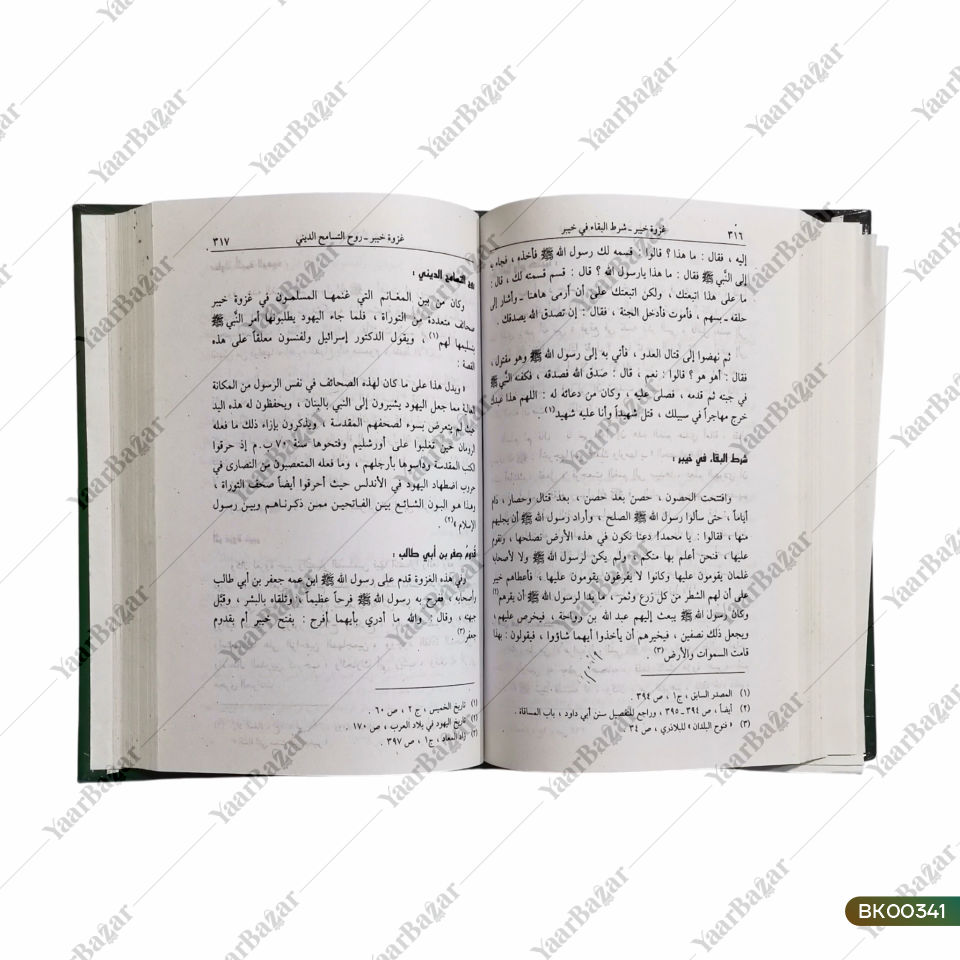 ٣١٦
غزوة خيبر ـ شرط البقاء في خيبر
إليه ، فقال : ما هذا ؟ قالوا : قسمه لك رسول الله ﷺ فأخذه ، فجاء به
إلى النَّبي ﷺ فقال : ما هذا يارسول الله ؟ قال : قسم قسمته لك ، قال :
ما على هذا اتبعتك ، ولكن اتبعتك على أن أرمى هاهنا ـ وأشار إلى
حلقه ـ بسهم ، فأموت فأدخل الجنة ، فقال : إن تصدق الله يصدقك .
ثم نهضوا إلى قتال العدو ، فأتي به إلى رسول الله ﷺ وهو مقتول ،
فقال : أهو هو ؟ قالوا : نعم ، قال : صدق الله فصدقه ، فكفنه النَّبي ﷺ
في جبته ثم قدمه ، فصلى عليه ، وكان من دعائه له : اللهم هذا عبدك
خرج مهاجراً في سبيلك ، قتل شهيداً وأنا عليه شهيد(١) .
شرط البقاء في خيبر :
وافتتحت الحصون ، حصن بعد حصن ، بعد قتال وحصار ، دام
أياماً ، حتى سألوا رسول الله ﷺ الصلح ، وأراد رسول الله ﷺ أن يجليهم
منها ، فقالوا : يا محمد! دعنا نكون في هذه الأرض نصلحها ، ونقوم
عليها ، فنحن أعلم بها منكم ، ولم يكن لرسول الله ﷺ ولا لأصحابه
غلمان يقومون عليها وكانوا لا يفرغون يقومون عليها ، فأعطاهم خيبر
على أن لهم الشطر من كل زرع وثمر ، ما بدا لرسول الله ﷺ أن يقرهم(٢)
وكان رسول الله ﷺ يبعث إليهم عبد الله بن رواحة ، فيخرص عليهم ،
ويجعل ذلك نصفين ، فيخيرهم أن يأخذوا أيهما شاؤوا ، فيقولون : بهذا
قامت السموات والأرض(٣) .
(١) المصدر السابق ، ج١ ، ص ٣٩٤ .
(٢) أيضاً ، ص ٣٩٤ـ ٣٩٥ ، وراجع للتفصيل سنن أبي داود ، باب المساقاة .
(٣) « فتوح البلدان » للبلاذري ، ص ٣٤ .
غزوة خيبر ـ روح التسامح الديني
٣١٧
التسامح الديني :
وكان من بين المغانم التي غنمها المسلمون في غزوة خيبر
صحائف متعددة من التوراة ، فلما جاء اليهود يطلبونها أمر النَّبي ﷺ
بتسليمها لهم(١) ، ويقول الدكتور إسرائيل ولفنسون معلقاً على هذه
القصة :
« ويدل هذا على ما كان لهذه الصحائف في نفس الرسول من المكانة
العالية مما جعل اليهود يشيرون إلى النبي بالبنان ، ويحفظون له هذه اليد
حيث لم يتعرض بسوء لصحفهم المقدسة ، ويذكرون بإزاء ذلك ما فعله
الرومان حين تغلبوا على أورشليم وفتحوها سنة ٧٠ ب.م إذ حرقوا
الكتب المقدسة وداسوها بأرجلهم ، وما فعله المتعصبون من النصارى في
حروب اضطهاد اليهود في الأندلس حيث أحرقوا أيضاً صحف التوراة ،
وهذا هو البون الشائع بين الفاتحين ممن ذكرناهم وبين رسول
الإسلام »(٢) .
قدوم جعفر بن أبي طالب :
وفي هذه الغزوة قدم على رسول الله ﷺ ابن عمه جعفر بن أبي طالب
وأصحابه ، ففرح به رسول الله ﷺ فرحاً عظيماً ، وتلقاه بالبشر ، وقبّل
جبهته ، وقال : والله ما أدري بأيهما أفرح : بفتح خيبر أم بقدوم
جعفر(٣) .
(١) تاريخ الخميس ، ج ٢ ، ص ٦٠ .
(٢) تاريخ اليهود في بلاد العرب ، ص ١٧٠ .
(٣) زاد المعاد ، ج١ ، ص ٣٩٧ .
YaarBazar
BK00341